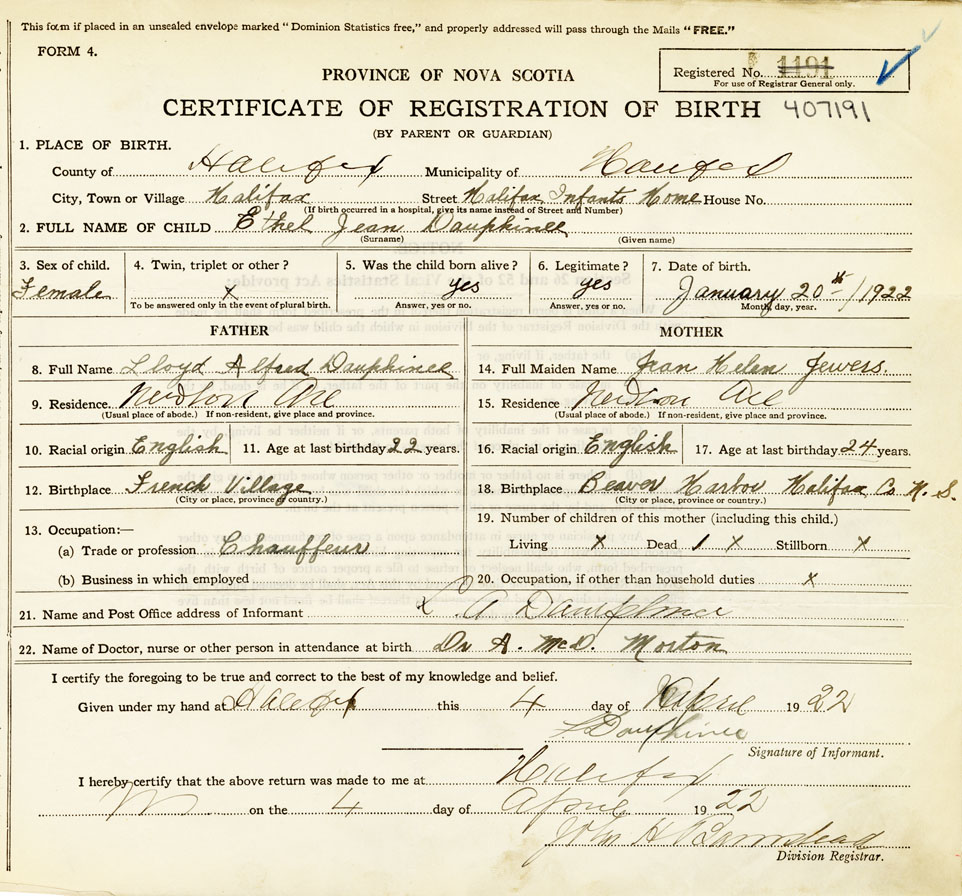 This form if placed in an unsealed envelope marked "Dominion Statistics free," and properly addressed will pass through the Mails "FREE."
FORM 4.
Registered No. 1191
For use of Registrar General only.
PROVINCE OF NOVA SCOTIA
CERTIFICATE OF REGISTRATION OF BIRTH 407191
(BY PARENT OR GUARDIAN)
1. PLACE OF BIRTH.
County of Halifax Municipality of Halifax
City, Town or Village Halifax Street Halifax Infants Home House No.
(If birth occurred in a hospital, give its name instead of Street and Number)
2. FULL NAME OF CHILD Ethel Jean Dauphinee
(Surname) (Given name)
3. Sex of child. 4. Twin, triplet or other? 5. Was the child born alive? 6. Legitimate? 7. Date of birth.
Female x yes yes January 20th/1922
To be answered only in the event of plural birth. Answer, yes or no. Answer, yes or no. Month, day, year.
FATHER MOTHER
8. Full Name Lloyd Alfred Dauphinee 14. Full Maiden Name Jean Helen Jewers.
9. Residence. Newton Ave 15. Residence Newton Ave
(Usual place of abode.) If non-resident, give place and province. (Usual place of abode.) If non-resident, give place and province.
10. Racial origin English 11. Age at last birthday 22 years. 16. Racial origin English 17. Age at last birthday 24 years.
12. Birthplace French Village 18. Birthplace Beaver Harbor Halifax Co N.S.
(City or place, province or country.) (City or place, province or country.)
13. Occupation:— 19. Number of children of this mother (including this child.)
(a) Trade or profession Chauffeur Living x Dead 1 x Stillborn x
(b) Business in which employed 20. Occupation, if other than household duties x
21. Name and Post Office address of Informant L A Dauphinee
22. Name of Doctor, nurse or other person in attendance at birth Dr A. McD. Morton
I certify the foregoing to be true and correct to the best of my knowledge and belief.
Given under my hand at Halifax this 4 day of April 1922
L Dauphinee
Signature of Informant.
I hereby certify that the above return was made to me at Halifax
on the 4 day of April 1922
John H Barnstead
Division Registrar.